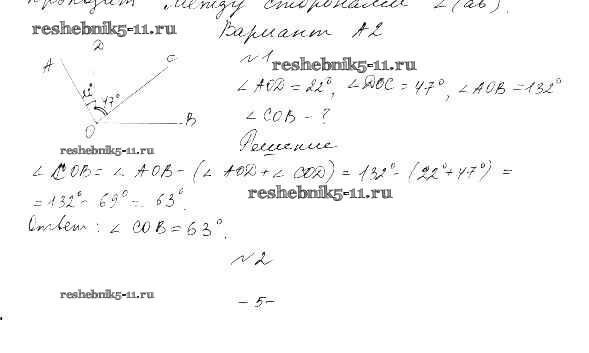 проходит между сторонами ∠(ab).
reshebnik5-11.ru
Вариант А2
D
A
C
22°
47°
O
B
№1
reshebnik5-11.ru
∠AOD = 22°, ∠DOC = 47°, ∠AOB = 132°
∠COB - ?
Решение
reshebnik5-11.ru
∠COB = ∠AOB - (∠AOD + ∠COD) = 132° - (22° + 47°) =
reshebnik5-11.ru
= 132° - 69° = 63°.
Ответ: ∠COB = 63°.
№2
reshebnik5-11.ru
- 5 -